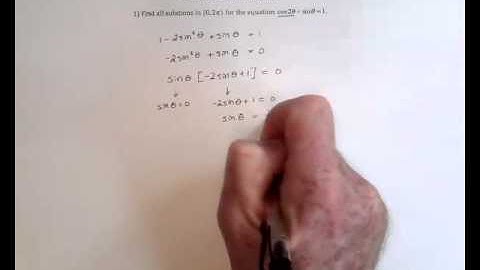 1) Find all solutions in [0,2π) for the equation cos2θ + sinθ = 1.
1 - 2sin²θ + sinθ = 1
-2sin²θ + sinθ = 0
sinθ [-2sinθ+1] = 0
↓ ↓
sinθ=0 -2sinθ+1 = 0
sinθ =